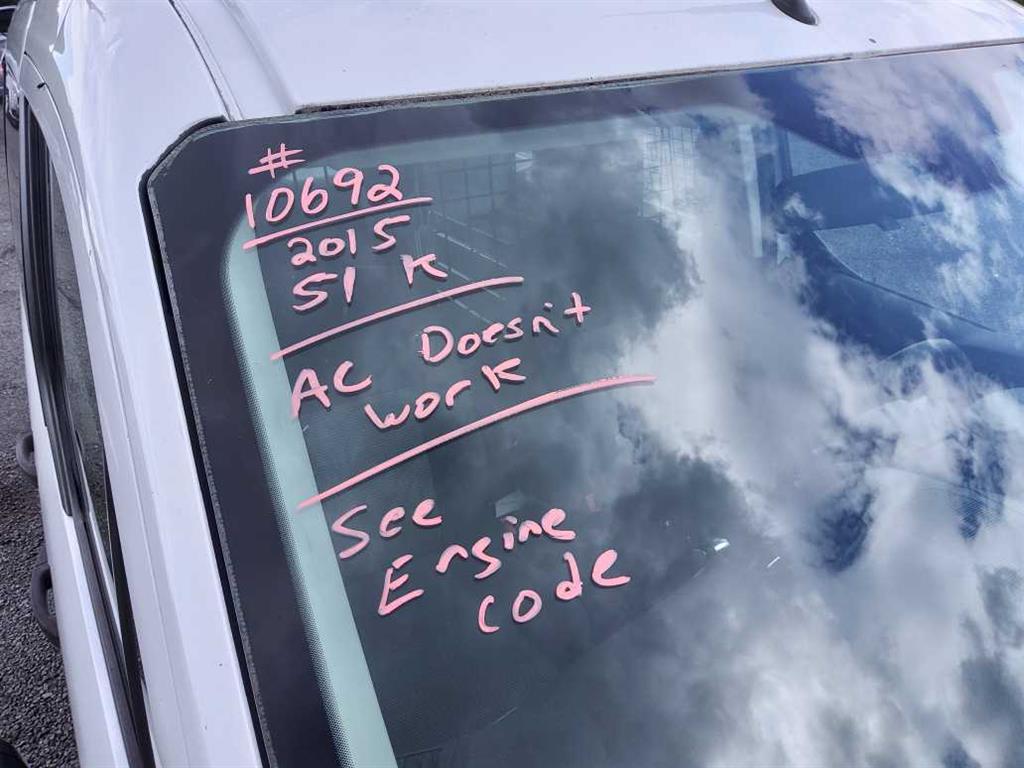 #
10692
2015
51 K
AC Doesn't
work
See
Engine
code